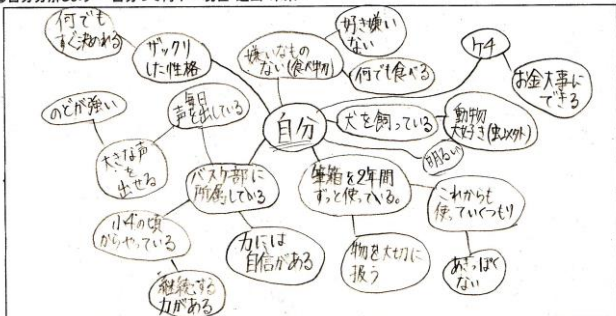 何でも
すぐ決めれる
ザックリ
した性格
嫌いなもの
ない(食べ物)
好き嫌い
ない
何でも食べる
ケチ
お金大事に
できる
自分
犬を飼っている
動物
大好き(虫以外)
明るい
のどが強い
毎日
声を出している
大きな声
を
出せる
バスケ部に
所属している
小4の頃
からやっている
継続する
力がある
力には
自信がある
筆箱を2年間
ずっと使っている。
物を大切に
扱う
これからも
使っていくつもり
あきっぽく
ない